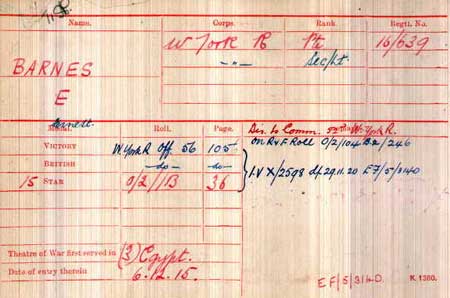 Name. Corps. Rank. Regtl. No.
BARNES W York R Pte 16/639
E —"— Sec/Lt.
Ernest
Medal. Roll. Page. Dis. to Comm. W. York R.
VICTORY W York R Off 56 105 on R v F Roll 0/2/104 B2/246
BRITISH —do— —do—
15 STAR 0/2/11B 36 I.V X/2598 d/29.11.20 EF/5/3140
Theatre of War first served in (3) Egypt.
Date of entry therein 6.12.15.
EF/5/3140. K 1380.